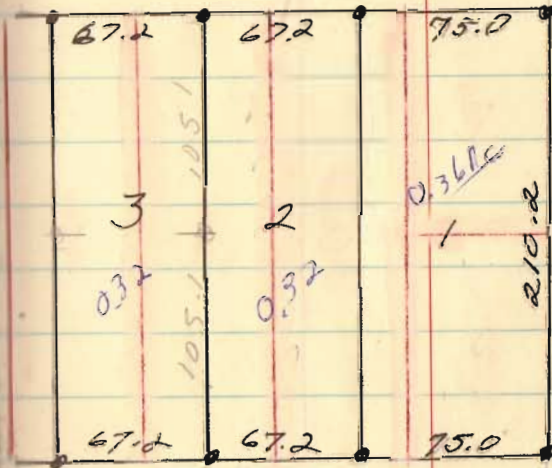 67.2 67.2 75.0
105.1
0.36Ac
3 2 1
210.2
032 0.32
105.1
67.2 67.2 75.0